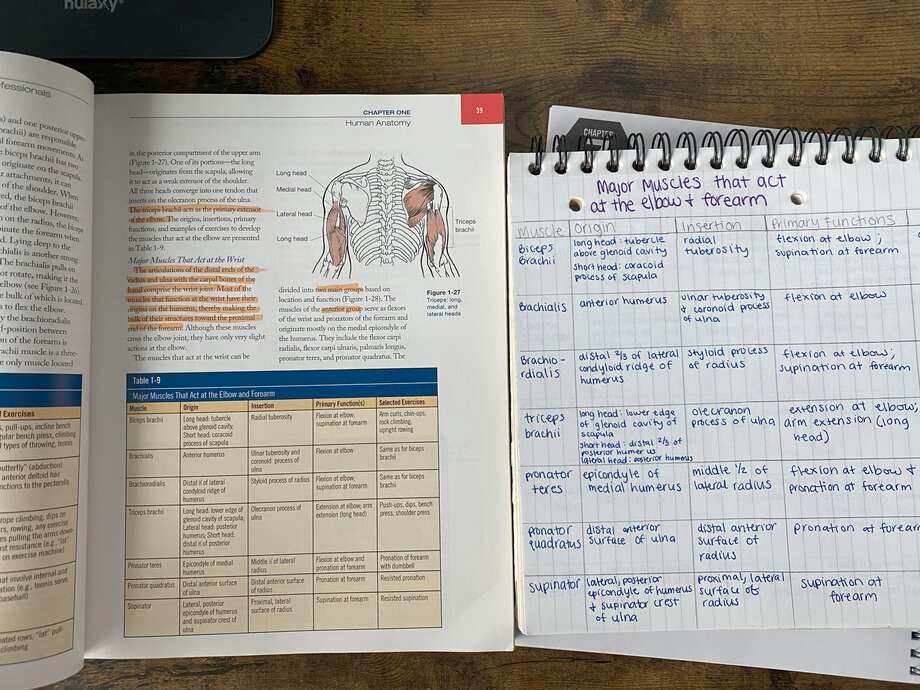 nulaxy
fessionals
s) and one posterior upper-
brachii) are responsible
d forearm movements. As
e biceps brachii has two
originate on the scapula.
r attachments, it can
of the shoulder. When
red, the biceps brachii
of the elbow. However,
n on the radius, the biceps
inate the forearm when
d. Lying deep to the
brachialis is another strong
The brachialis pulls on
not rotate, making it the
elbow (see Figure 1-26).
the bulk of which is located
s to flex the elbow.
y the brachioradialis
d-position between
on of the forearm is
rachii muscle is a three-
e only muscle located
d Exercises
s, pull-ups, incline bench
gular bench press, climbing
d types of throwing, tennis
utterfly" (abduction)
anterior deltoid has
nctions to the pectoralis
rope climbing, dips on
rs, rowing, any exercise
ves pulling the arms down-
st resistance (e.g., "lat"
on exercise machine)
hat involve internal and
ation (e.g., tennis serve,
baseball)
ated rows, "lat" pull-
climbing
CHAPTER ONE
Human Anatomy
39
in the posterior compartment of the upper arm
(Figure 1-27). One of its portions—the long
head—originates from the scapula, allowing
it to act as a weak extensor of the shoulder.
All three heads converge into one tendon that
inserts on the olecranon process of the ulna.
The triceps brachii acts as the primary extensor
of the elbow. The origins, insertions, primary
functions, and examples of exercises to develop
the muscles that act at the elbow are presented
in Table 1-9.
Major Muscles That Act at the Wrist
The articulations of the distal ends of the
radius and ulna with the carpal bones of the
hand comprise the wrist joint. Most of the
muscles that function at the wrist have their
origins on the humerus, thereby making the
bulk of their structures toward the proximal
end of the forearm. Although these muscles
cross the elbow joint, they have only very slight
actions at the elbow.
The muscles that act at the wrist can be
Long head
Medial head
Lateral head
Long head
Triceps
brachii
divided into two main groups based on
location and function (Figure 1-28). The
muscles of the anterior group serve as flexors
of the wrist and pronators of the forearm and
originate mostly on the medial epicondyle of
the humerus. They include the flexor carpi
radialis, flexor carpi ulnaris, palmaris longus,
pronator teres, and pronator quadratus. The
Figure 1-27
Triceps: long,
medial, and
lateral heads
Table 1-9
Major Muscles That Act at the Elbow and Forearm
Muscle Origin Insertion Primary Function(s) Selected Exercises
Biceps brachii Long head: tubercle Radial tuberosity Flexion at elbow; Arm curls, chin-ups,
above glenoid cavity; supination at forearm rock climbing,
Short head: coracoid upright rowing
process of scapula
Brachialis Anterior humerus Ulnar tuberosity and Flexion at elbow Same as for biceps
coronoid process of brachii
ulna
Brachioradialis Distal ⅔ of lateral Styloid process of radius Flexion at elbow; Same as for biceps
condyloid ridge of supination at forearm brachii
humerus
Triceps brachii Long head: lower edge Olecranon process of ulna Extension at elbow; arm Push-ups, dips, bench
of glenoid cavity of scapula; extension (long head) press, shoulder press
Lateral head: posterior
humerus; Short head:
distal ⅔ of posterior
humerus
Pronator teres Epicondyle of medial Middle ⅓ of lateral Flexion at elbow and Pronation of forearm
humerus radius pronation at forearm with dumbbell
Pronator quadratus Distal anterior surface Distal anterior surface Pronation at forearm Resisted pronation
of ulna of radius
Supinator Lateral, posterior Proximal, lateral Supination at forearm Resisted supination
epicondyle of humerus surface of radius
and supinator crest of
ulna
CHAPTER
Major Muscles that act
at the elbow & forearm
Muscle Origin Insertion Primary Functions
Biceps long head: tubercle radial flexion at elbow;
Brachii above glenoid cavity tuberosity supination at forearm
short head: coracoid
process of scapula
Brachialis anterior humerus ulnar tuberosity flexion at elbow
& coronoid process
of ulna
Brachio- distal ⅔ of lateral styloid process flexion at elbow;
rdialis condyloid ridge of of radius supination at forearm
humerus
triceps long head: lower edge olecranon extension at elbow;
brachii of glenoid cavity of process of ulna arm extension (long
scapula head)
short head: distal ⅔ of
posterior humerus
lateral head: posterior humerus
pronator epicondyle of middle ½ of flexion at elbow &
teres medial humerus lateral radius pronation at forearm
pronator distal anterior distal anterior pronation at forearm
quadratus surface of ulna surface of
radius
supinator lateral, posterior proximal, lateral supination at
epicondyle of humerus surface of forearm
& supinator crest radius
of ulna